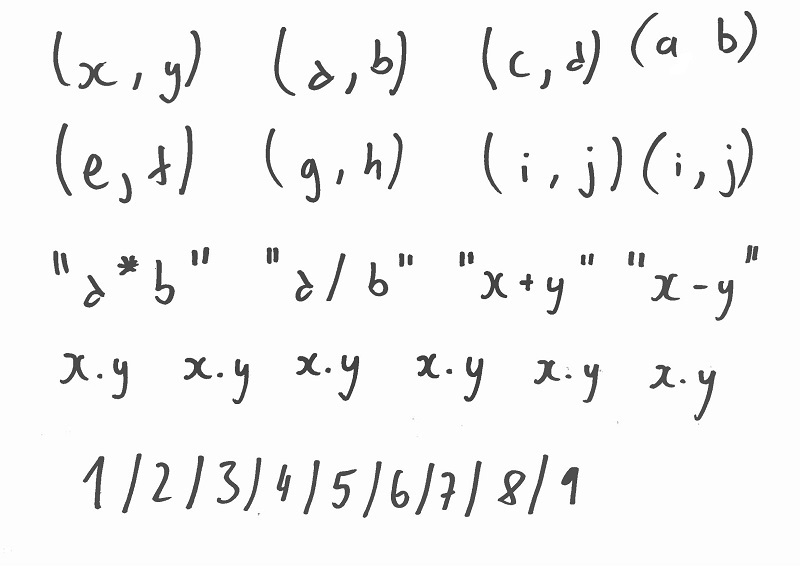 (x, y) (a, b) (c, d) (a b)
(e, f) (g, h) (i, j) (i, j)
"a*b" "a/b" "x+y" "x-y"
x.y x.y x.y x.y x.y x.y
1/2/3/4/5/6/7/8/9